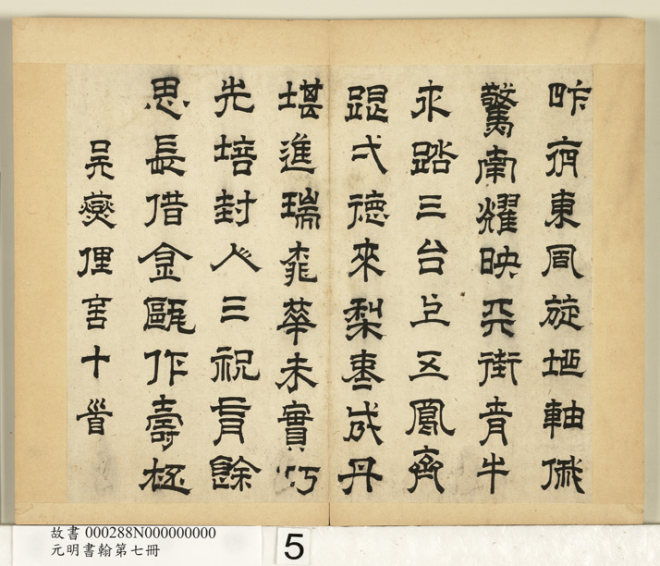 昨夜東風旋地軸俄
驚南耀映天街青牛
踏三台上五鳳齊
弌德來梨棗成丹
堪進瑞桃華未實巧
先培封人三祝有餘
思長借金甌作壽桮
吳爕俚言十首
故書 000288N000000000
元明書翰第七冊
5